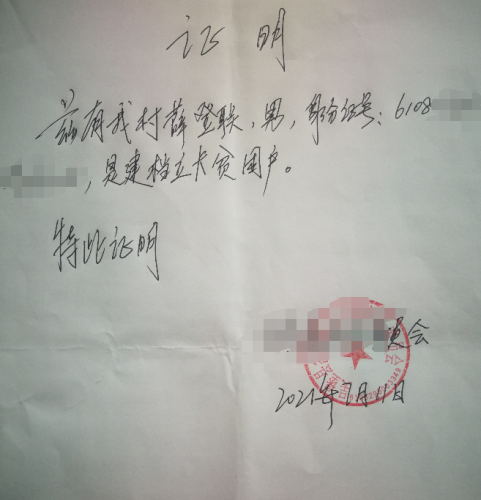 证明
兹有我村薛登联,男,身份证号:6108
,是建档立卡贫困户。
特此证明
员会
2021年7月11日